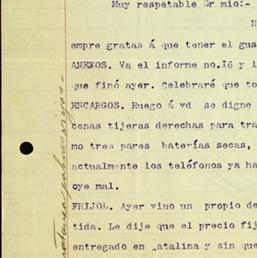 Muy respetable Sr mio:-
N
empre gratas á que tener el gus
ANEXOS. Va el informe no.16 y l
que finó ayer. Celebraré que to
ENCARGOS. Ruego á vd se digne
cenas tijeras derechas para tra
mo tres pares baterías secas,
actualmente los teléfonos ya ha
oye mal.
FRIJOL. Ayer vino un propio de
tida. Le dije que el precio fij
entregado en atalina y sin que